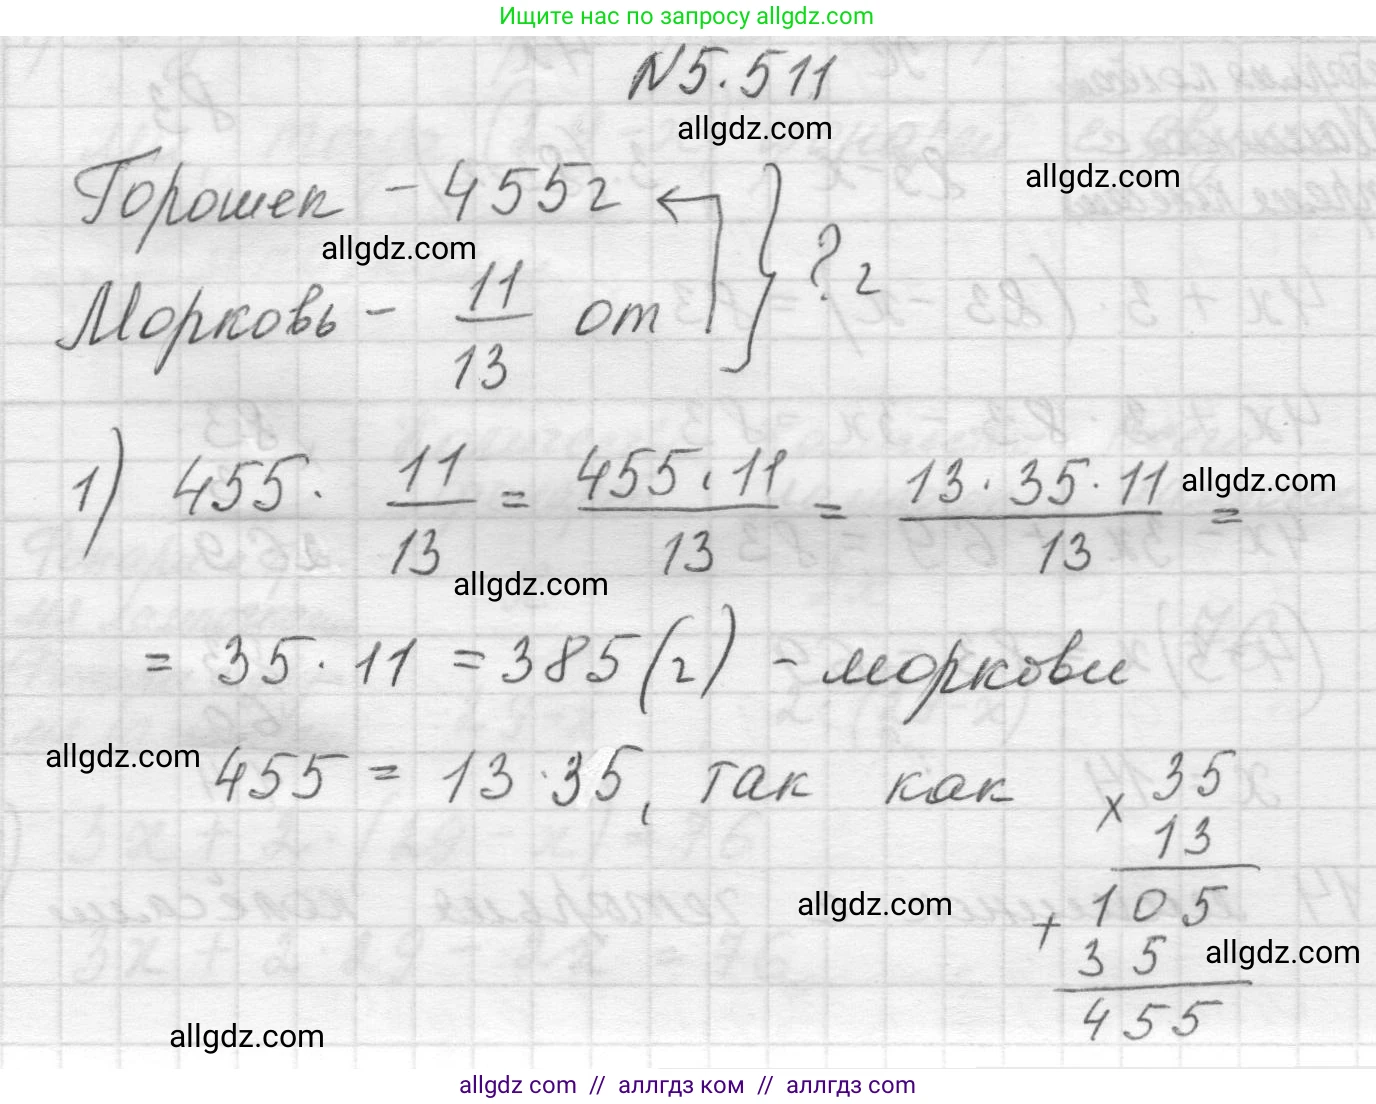 Ищите нас по запросу allgdz.com
№5.511
allgdz.com
Горошек – 455 г
allgdz.com
allgdz.com
Морковь – 11/13 от } ? г
1) 455 · 11/13 = 455·11/13 = 13·35·11/13 =
allgdz.com
allgdz.com
= 35 · 11 = 385 (г) – моркови
allgdz.com
455 = 13·35, так как
× 35
13
+ 105
35
455
allgdz.com
allgdz.com
allgdz.com
allgdz com // аллгдз ком // аллгдз com